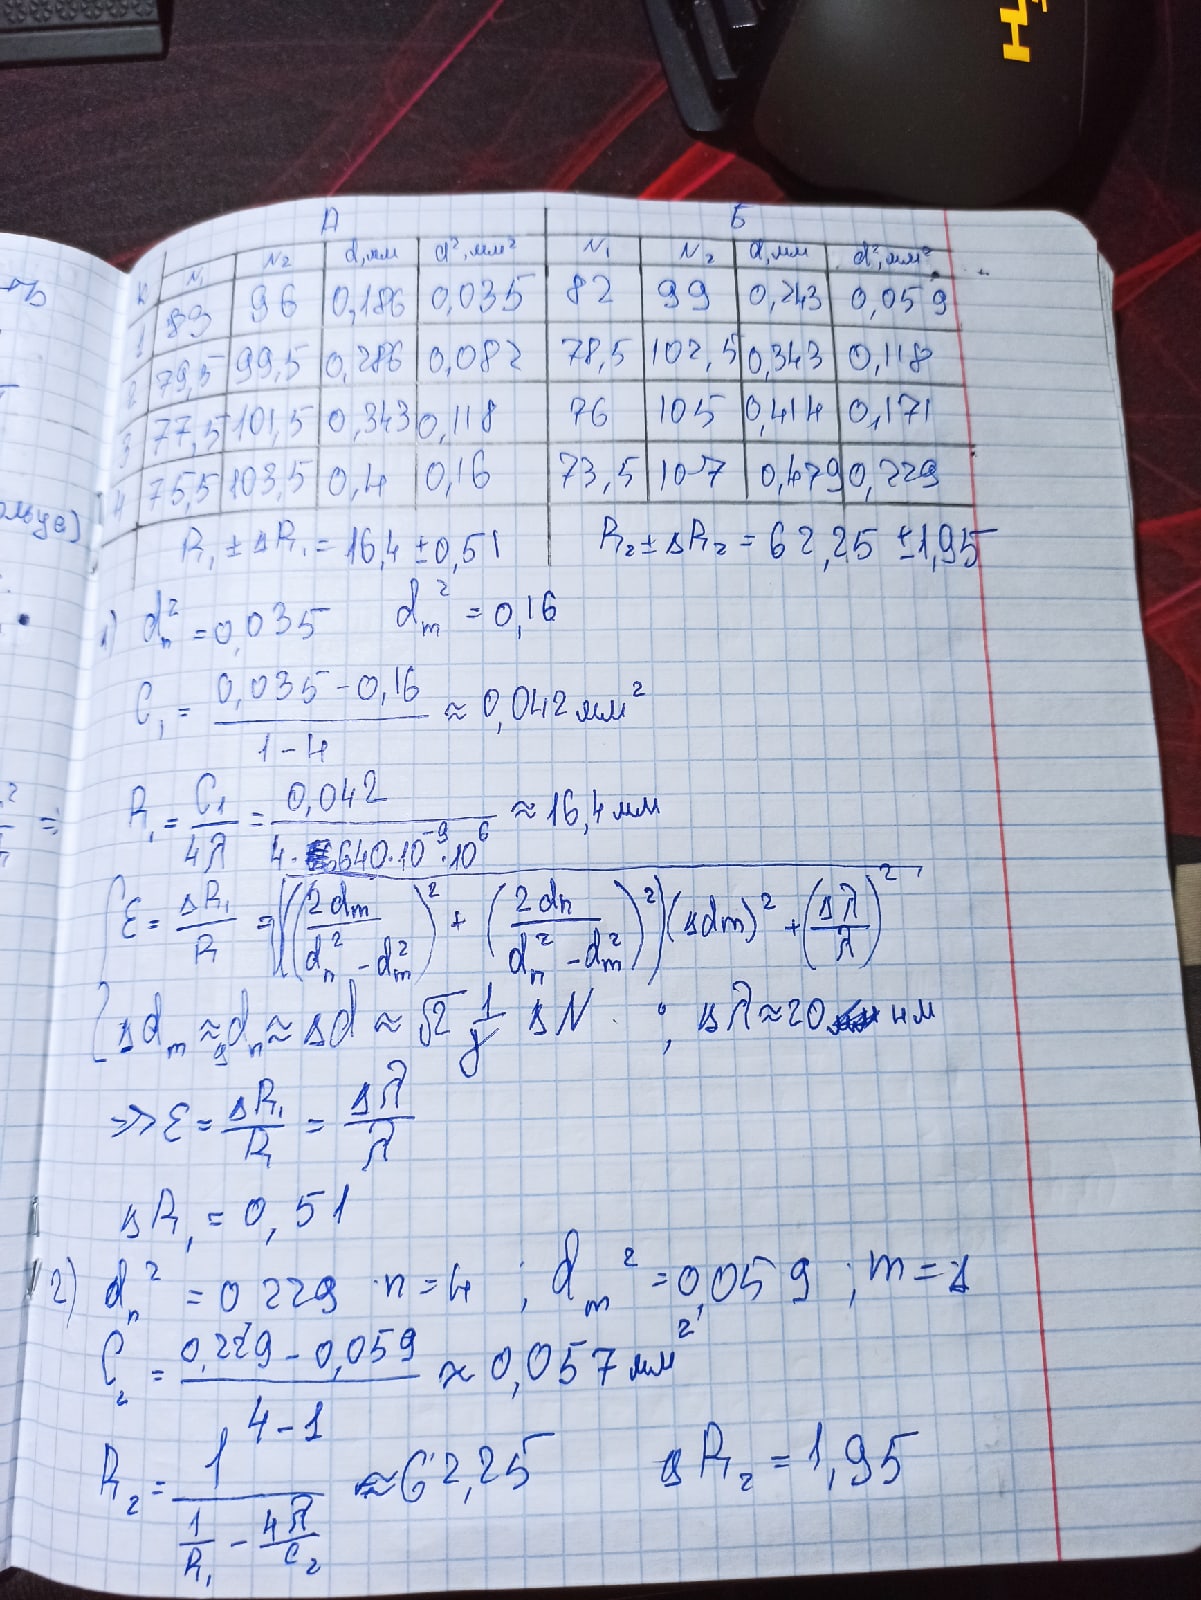 А Б
k N₁ N₂ d, мм d², мм² N₁ N₂ d, мм d², мм²
1 89 96 0,186 0,035 82 99 0,243 0,059
2 79,5 99,5 0,286 0,082 78,5 102,5 0,343 0,118
3 77,5 101,5 0,343 0,118 76 105 0,414 0,171
4 75,5 103,5 0,4 0,16 73,5 107 0,479 0,229
R₁ ± ΔR₁ = 16,4 ± 0,51 R₂ ± ΔR₂ = 62,25 ± 1,95
1) dₙ² = 0,035 dₘ² = 0,16
C₁ = (0,035 - 0,16)/(1 - 4) ≈ 0,042 мм²
R₁ = C₁/4λ = 0,042/(4 · 640 · 10⁻⁹ · 10⁶) ≈ 16,4 мм
ε = ΔR₁/R = √(((2dₘ/(dₙ² - dₘ²))² + (2dₙ/(dₙ² - dₘ²))²)(Δdₘ)² + (Δλ/λ)²)
Δdₘ ≈ dₙ ≈ Δd ≈ √2 1/γ ΔN ; Δλ ≈ 20 нм
=> ε = ΔR₁/R₁ = Δλ/λ
ΔR₁ = 0,51
2) dₙ² = 0 229 n = 4 ; dₘ² = 0,059 ; m = 1
C₂ = (0,229 - 0,059)/(4 - 1) ≈ 0,057 мм²
R₂ = 1/(1/R₁ - 4λ/C₂) ≈ 62,25 ΔR₂ = 1,95